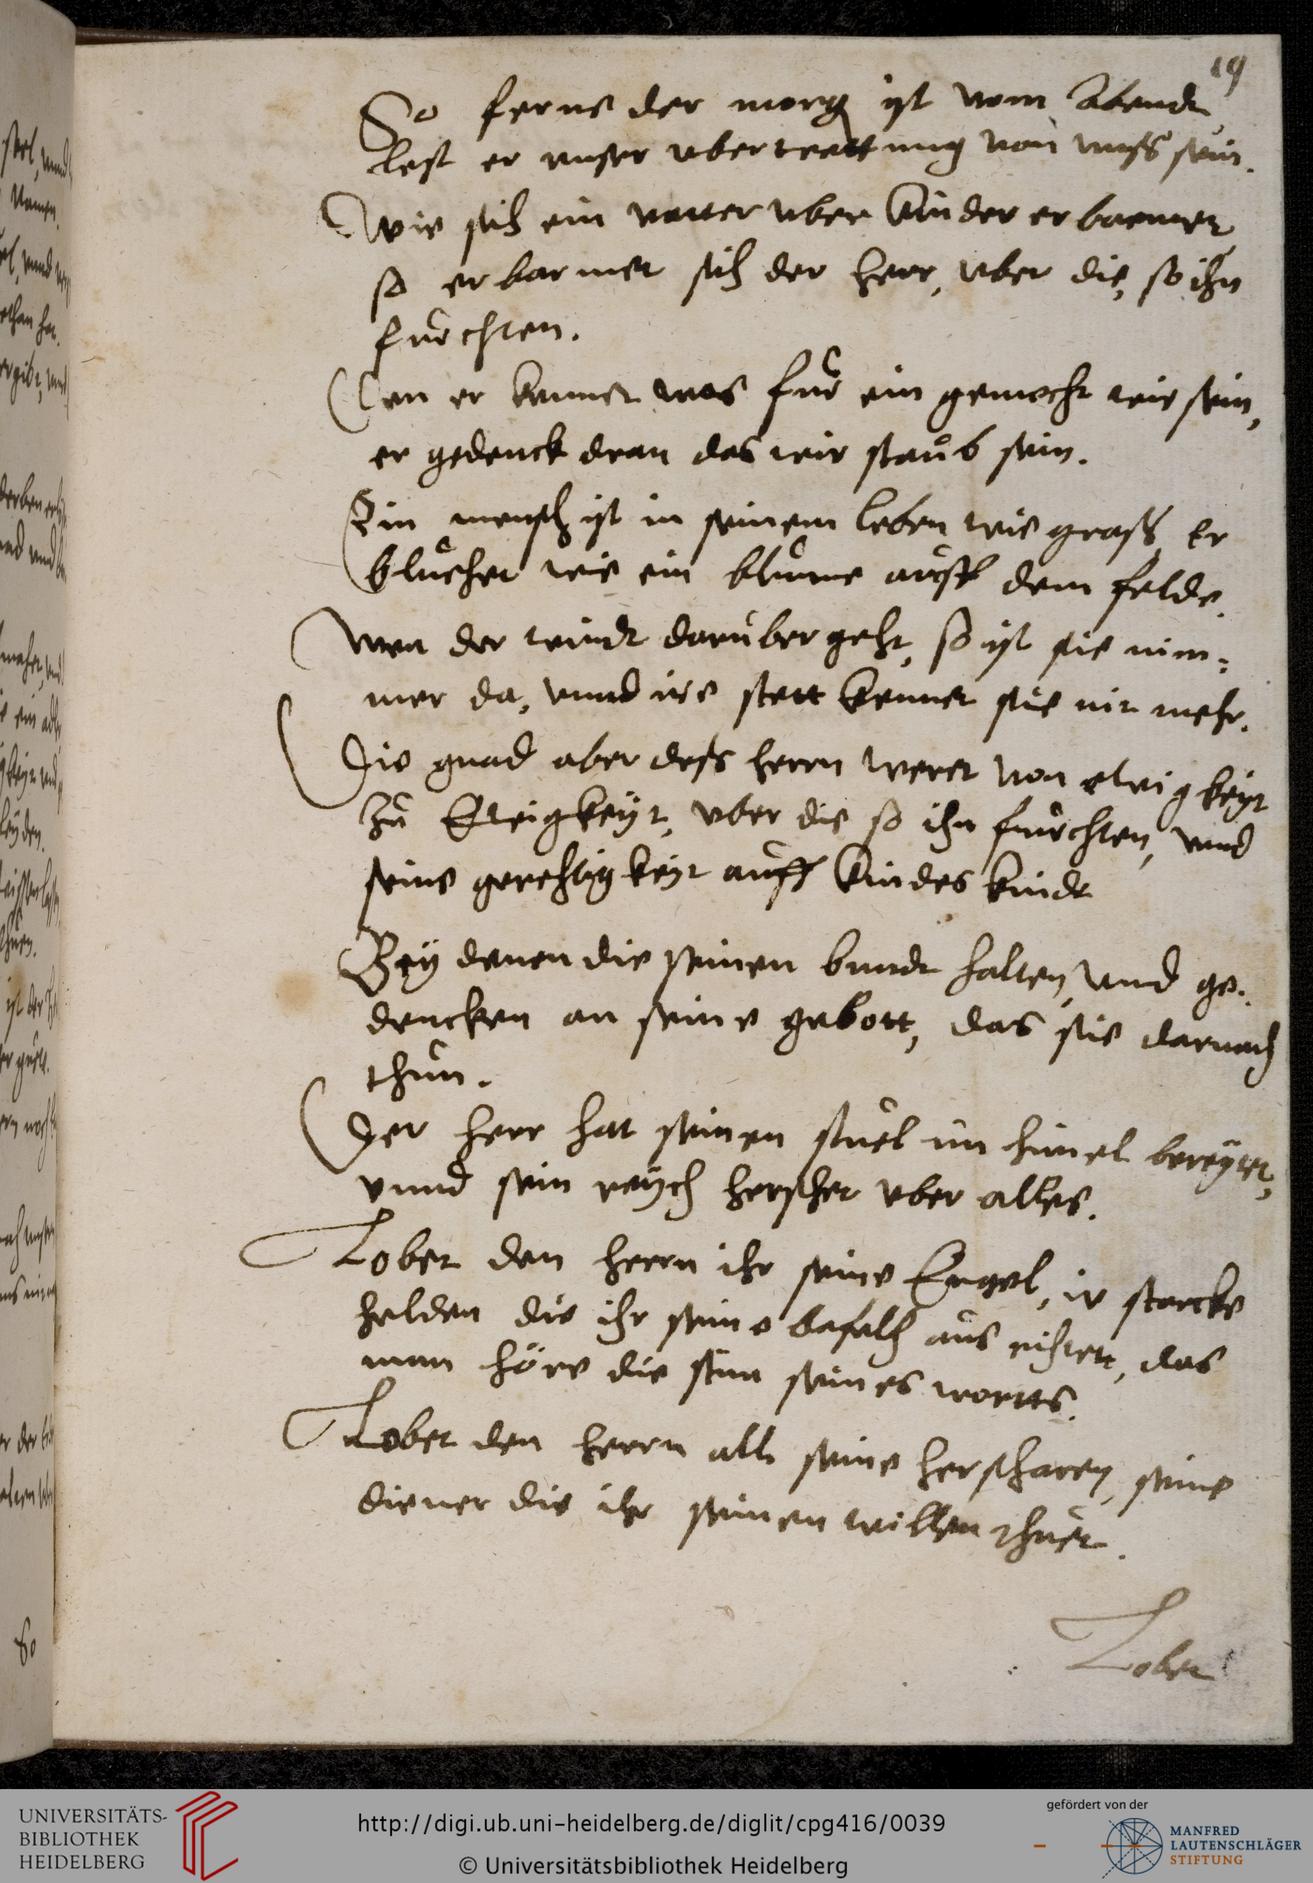 19
So ferne der morg ist vom Abendt
lest er vnser vbertrettung von vnss sein.
Wie sich ein vatter vber kinder erbarmet
so erbarmet sich der herr, vber die, so ihn
fürchten.
Den er kennet was für ein gemecht wir sein,
er gedenck dran das wir staub sein.
Ein mensch ist in seinem leben wie grass, Er
blüehet wie ein blume auff dem felde.
Wen der windt darüber geht, so ist sie nim-
mer da, vnnd ire stett kennet sie nit mehr.
Die gnad aber dess herrn weret von ewigkeyt
zu Ewigkeyt, vber die so ihn fürchten, vnnd
seine gerechtigkeyt auff kindes kindt
Bey denen die seinen bundt halten, vnd ge-
dencken an seine gebott, das sie darnach
thun.
Der herr hat seinen stuel im himel bereytet,
vnnd sein reych herschet vber alles.
Lobet den herrn ihr seine Engel, ir starcke
helden die ihr seine befelh aus richtett, das
man höre die stim seines wortts.
Lobet den herrn alle seine herscharen, seine
diener die ihr seinen willen thuet.
Lobet
So
UNIVERSITÄTS-
BIBLIOTHEK
HEIDELBERG
http://digi.ub.uni-heidelberg.de/diglit/cpg416/0039
© Universitätsbibliothek Heidelberg
gefördert von der
MANFRED
LAUTENSCHLÄGER
STIFTUNG